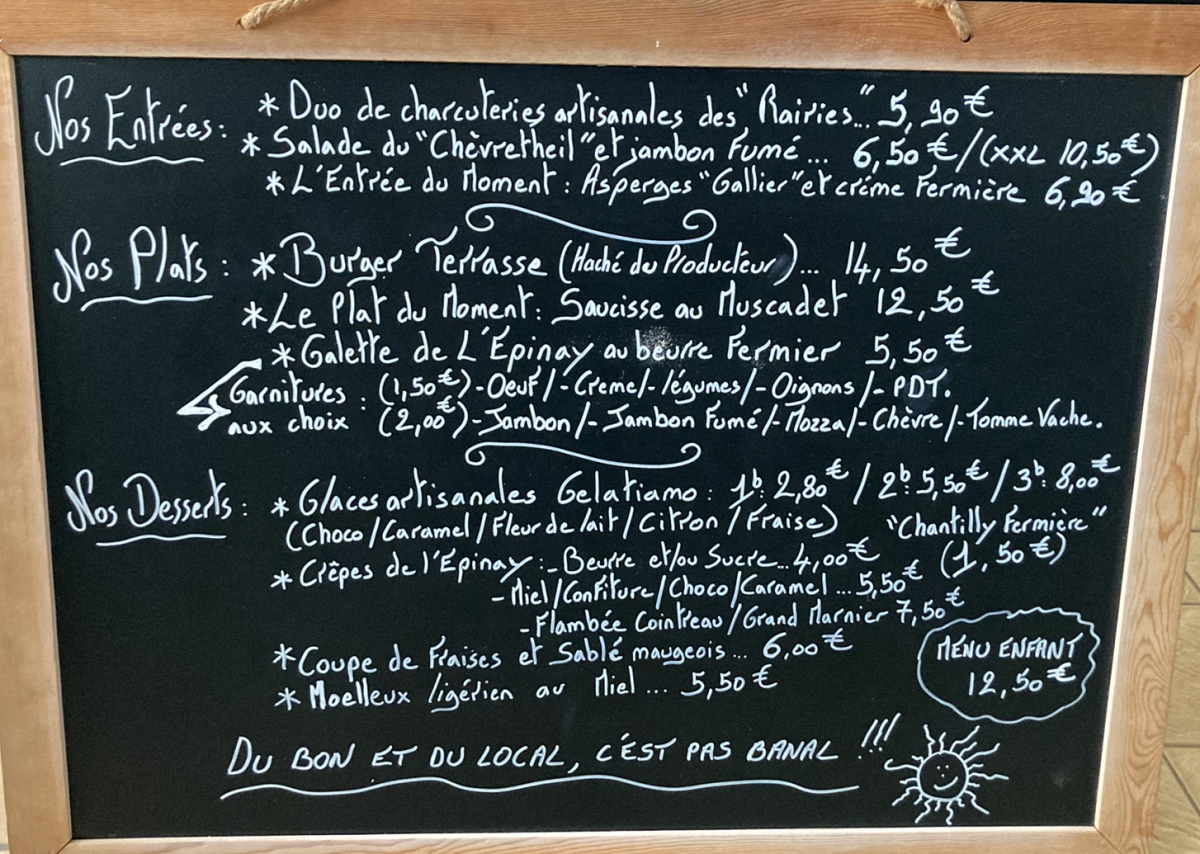 Nos Entrées : * Duo de charcuteries artisanales des "Rairies"... 5,90 €
* Salade du "Chèvretheil" et jambon Fumé ... 6,50 € / (XXL 10,50 €)
* L'Entrée du Moment : Asperges "Gallier" et crème Fermière 6,90 €
Nos Plats : * Burger Terrasse (Haché du Producteur) ... 14,50 €
* Le Plat du Moment : Saucisse au Muscadet 12,50 €
* Galette de L'Epinay au beurre Fermier 5,50 €
Garnitures aux choix : (1,50 €) - Oeuf / - Creme / - légumes / - Oignons / - PDT.
(2,00 €) - Jambon / - Jambon Fumé / - Mozza / - Chèvre / - Tomme Vache.
Nos Desserts : * Glaces artisanales Gelatiamo : 1b: 2,80 € / 2b: 5,50 € / 3b: 8,00 €
(Choco / Caramel / Fleur de lait / Citron / Fraise) "Chantilly Fermière"
(1,50 €)
* Crêpes de l'Epinay : - Beurre et/ou Sucre... 4,00 €
- Miel / Confiture / Choco / Caramel ... 5,50 €
- Flambée Cointreau / Grand Marnier 7,50 €
* Coupe de Fraises et Sablé maugeois ... 6,00 €
* Moelleux ligérien au Miel ... 5,50 €
MENU ENFANT
12,50 €
DU BON ET DU LOCAL, C'EST PAS BANAL !!!